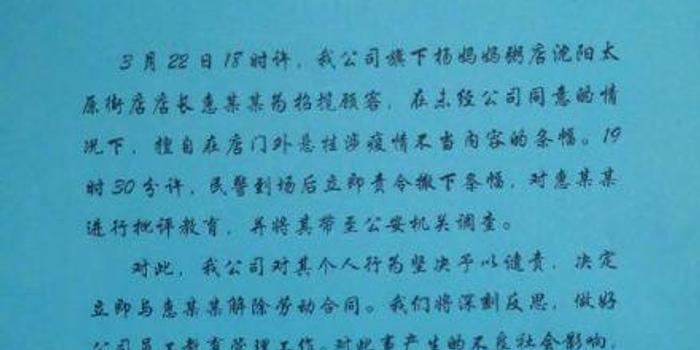 3月22日18时许，我公司旗下杨妈妈粥店沈阳太
原街店店长惠某某为招揽顾客，在未经公司同意的情
况下，擅自在店门外悬挂涉疫情不当内容的条幅。19
时30分许，民警到场后立即责令撤下条幅，对惠某某
进行批评教育，并将其带至公安机关调查。
对此，我公司对其个人行为坚决予以谴责，决定
立即与惠某某解除劳动合同。我们将深刻反思，做好
公司员工教育管理工作。对此事产生的不良社会影响，